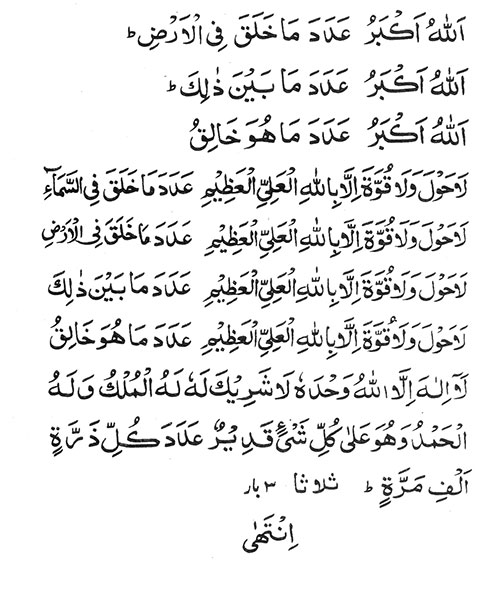 اَللهُ اَكْبَرُ عَدَدَ مَا خَلَقَ فِي الْاَرْضِ ط
اَللهُ اَكْبَرُ عَدَدَ مَا بَيْنَ ذٰلِكَ ط
اَللهُ اَكْبَرُ عَدَدَ مَا هُوَ خَالِقُ
لَاحَوْلَ وَلَا قُوَّةَ اِلَّا بِاللهِ الْعَلِيِّ الْعَظِيْمِ عَدَدَ مَا خَلَقَ فِي السَّمَآءِ
لَاحَوْلَ وَلَا قُوَّةَ اِلَّا بِاللهِ الْعَلِيِّ الْعَظِيْمِ عَدَدَ مَا خَلَقَ فِي الْاَرْضِ
لَاحَوْلَ وَلَا قُوَّةَ اِلَّا بِاللهِ الْعَلِيِّ الْعَظِيْمِ عَدَدَ مَا بَيْنَ ذٰلِكَ
لَاحَوْلَ وَلَا قُوَّةَ اِلَّا بِاللهِ الْعَلِيِّ الْعَظِيْمِ عَدَدَ مَا هُوَ خَالِقُ
لَآ اِلٰهَ اِلَّا اللهُ وَحْدَهٗ لَا شَرِيْكَ لَهٗ لَهُ الْمُلْكُ وَلَهُ
الْحَمْدُ وَهُوَ عَلٰى كُلِّ شَيْءٍ قَدِيْرٌ عَدَدَ كُلِّ ذَرَّةٍ
اَلْفِ مَرَّةٍ ط ثلاثا ٣ بار
اِنْتَهٰى